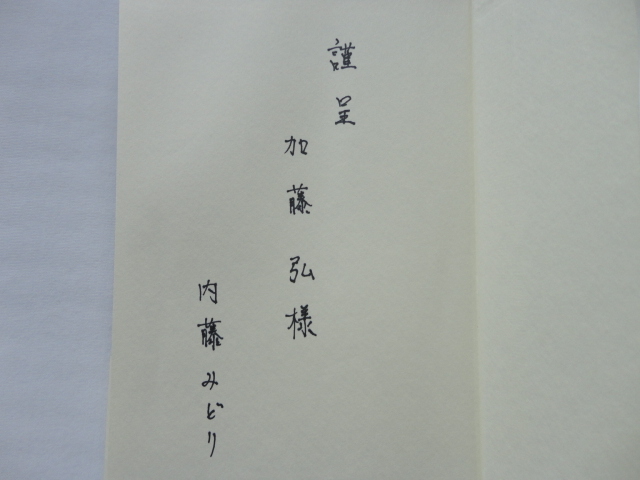 謹呈
加藤弘様
内藤みどり